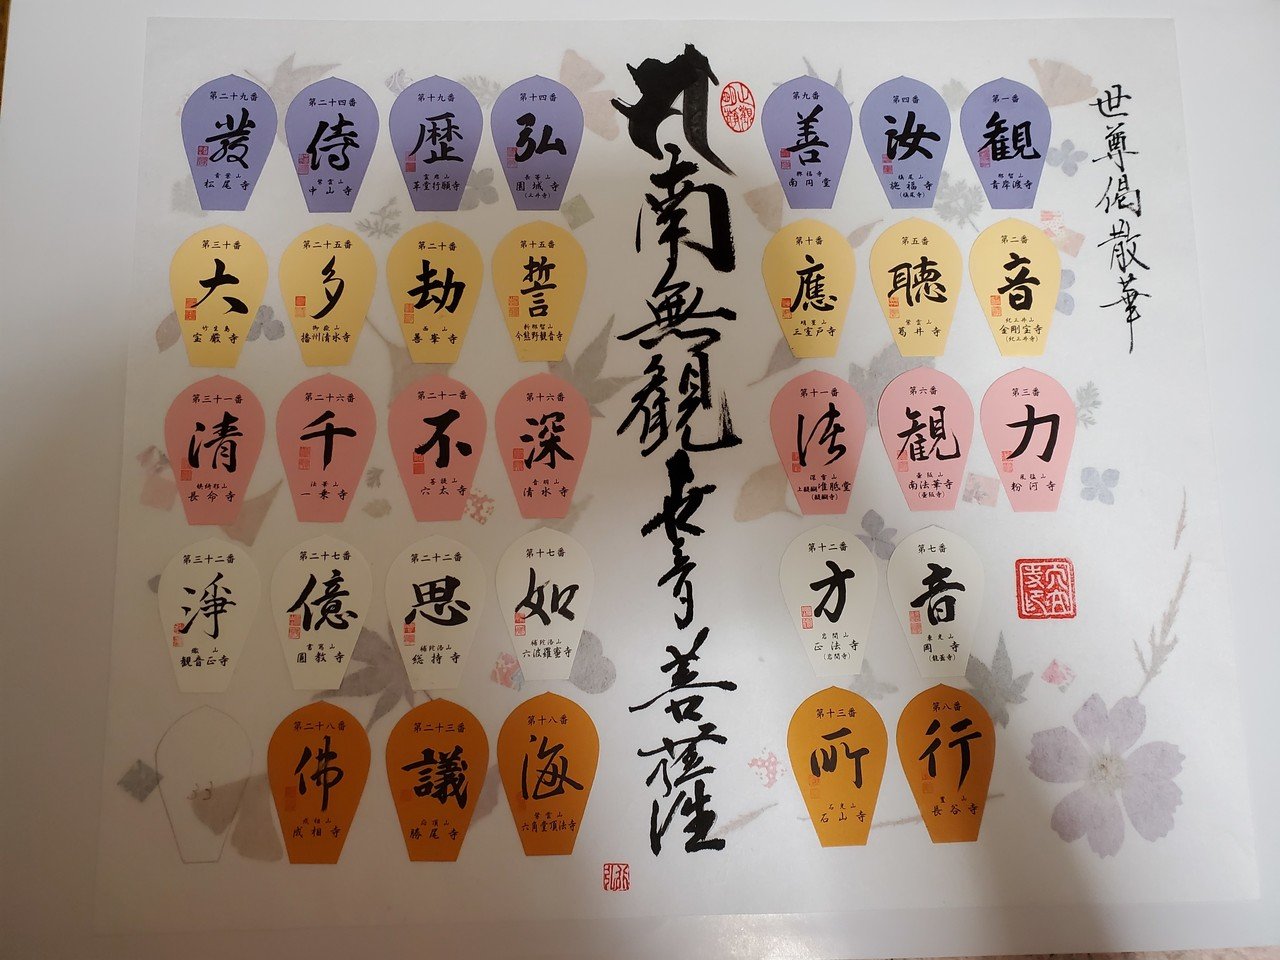 世尊偈散華
第一番
観
那智山
青岸渡寺
第二番
音
紀三井山
金剛宝寺
(紀三井寺)
第三番
力
風猛山
粉河寺
第四番
汝
槙尾山
施福寺
(槙尾寺)
第五番
聴
紫雲山
葛井寺
第六番
観
壷阪山
南法華寺
(壷阪寺)
第七番
音
東光山
岡寺
(龍蓋寺)
第八番
行
豊山
長谷寺
第九番
善
南円堂
第十番
應
明星山
三室戸寺
第十一番
深雪山
上醍醐准胝堂
(醍醐寺)
第十二番
方
岩間山
正法寺
(岩間寺)
第十三番
所
石光山
石山寺
南無観世音菩薩
第十四番
弘
長等山
園城寺
(三井寺)
第十五番
誓
新那智山
今熊野観音寺
第十六番
深
音羽山
清水寺
第十七番
如
補陀洛山
六波羅蜜寺
第十八番
海
紫雲山
六角堂頂法寺
第十九番
歴
霊麀山
革堂行願寺
第二十番
劫
西山
善峯寺
第二十一番
不
菩提山
穴太寺
第二十二番
思
補陀洛山
総持寺
第二十三番
議
応頂山
勝尾寺
第二十四番
侍
紫雲山
中山寺
第二十五番
多
御嶽山
播州清水寺
第二十六番
千
法華山
一乗寺
第二十七番
億
書寫山
圓教寺
第二十八番
佛
成相山
成相寺
第二十九番
發
青葉山
松尾寺
第三十番
大
竹生島
宝厳寺
第三十一番
清
姨綺耶山
長命寺
第三十二番
淨
繖山
観音正寺
33